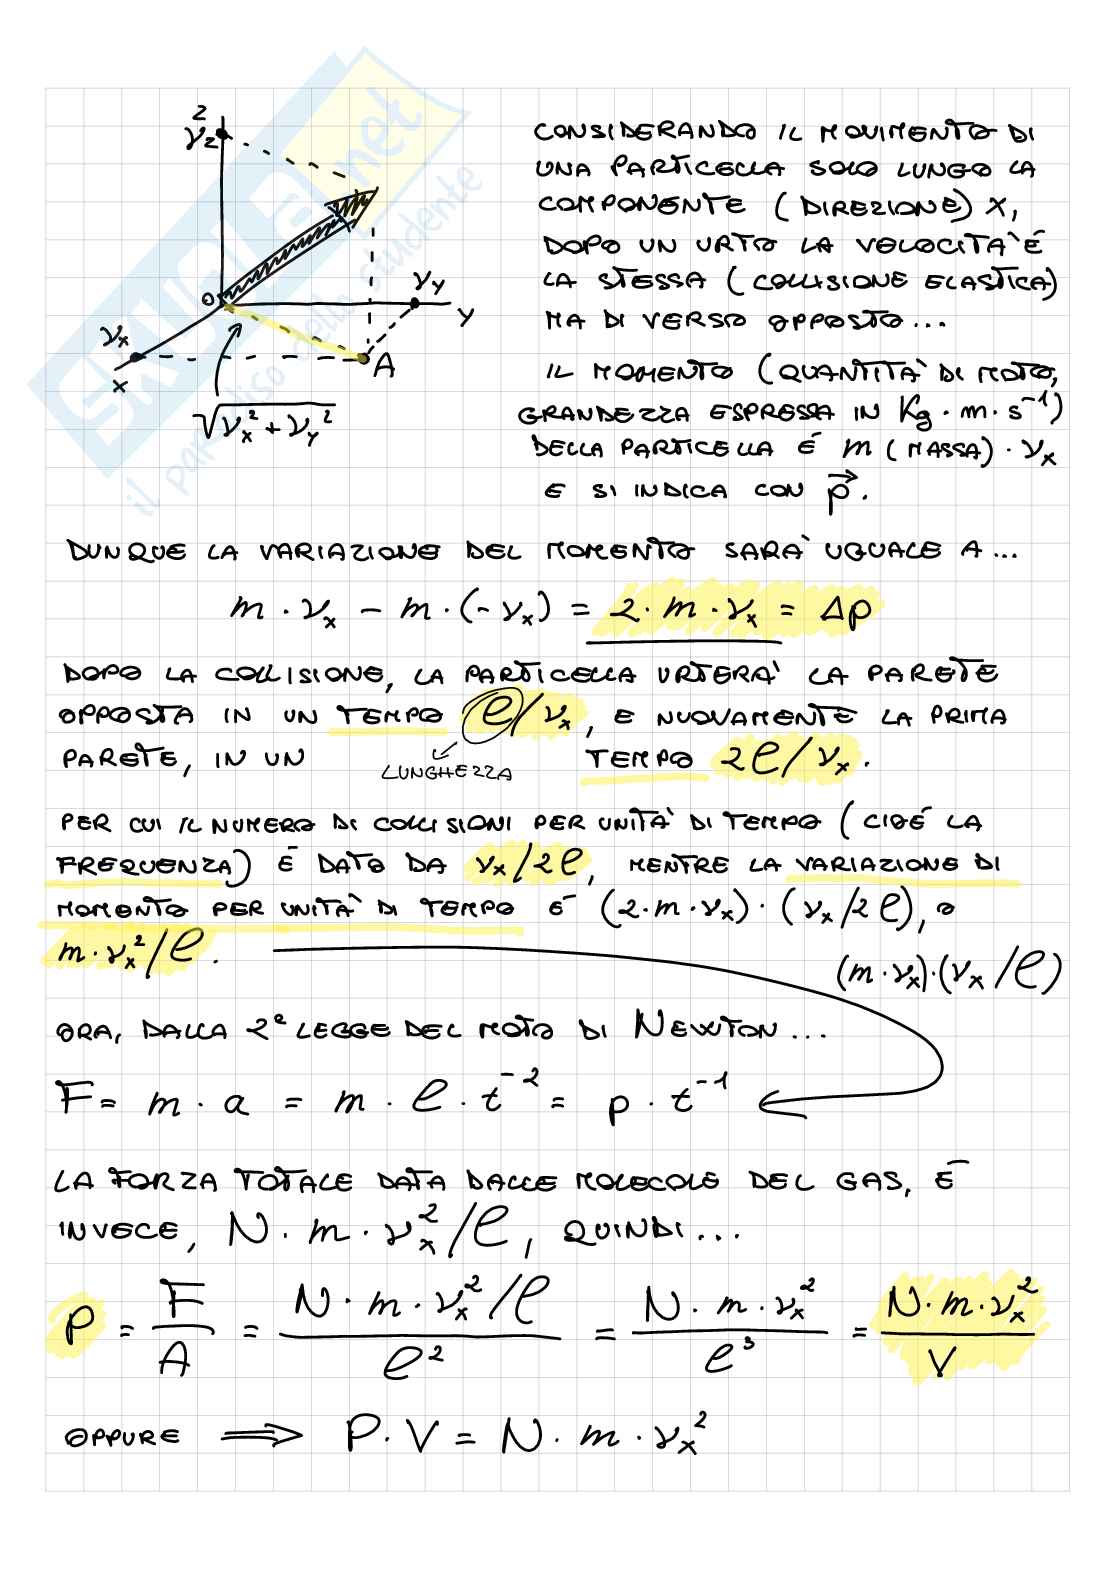 z
νz
νx
x
O
νy
y
A
√νx² + νy²
CONSIDERANDO IL MOVIMENTO DI
UNA PARTICELLA SOLO LUNGO LA
COMPONENTE (DIREZIONE) X,
DOPO UN URTO LA VELOCITÀ É
LA STESSA (COLLISIONE ELASTICA)
MA DI VERSO OPPOSTO...
IL MOMENTO (QUANTITÀ DI MOTO,
GRANDEZZA ESPRESSA IN Kg · m · s⁻¹)
DELLA PARTICELLA É m (MASSA) · νx
E SI INDICA CON p⃗.
DUNQUE LA VARIAZIONE DEL MOMENTO SARÀ UGUALE A...
m · νx - m · (-νx) = 2 · m · νx = Δp
DOPO LA COLLISIONE, LA PARTICELLA URTERÀ LA PARETE
OPPOSTA IN UN TEMPO ℓ/νx, E NUOVAMENTE LA PRIMA
PARETE, IN UN TEMPO 2ℓ/νx.
LUNGHEZZA
PER CUI IL NUMERO DI COLLISIONI PER UNITÀ DI TEMPO (CIOÉ LA
FREQUENZA) É DATO DA νx/2ℓ, MENTRE LA VARIAZIONE DI
MOMENTO PER UNITÀ DI TEMPO É (2·m·νx) · (νx/2ℓ), O
m·νx²/ℓ.
(m·νx)·(νx/ℓ)
ORA, DALLA 2ª LEGGE DEL MOTO DI NEWTON...
F = m · a = m · ℓ · t⁻² = p · t⁻¹
LA FORZA TOTALE DATA DALLE MOLECOLE DEL GAS, É
INVECE, N · m · νx²/ℓ, QUINDI...
P = F/A = (N · m · νx²/ℓ)/ℓ² = (N · m · νx²)/ℓ³ = (N · m · νx²)/V
OPPURE ⟹ P · V = N · m · νx²
SKUOLA.net
il paradiso dello studente